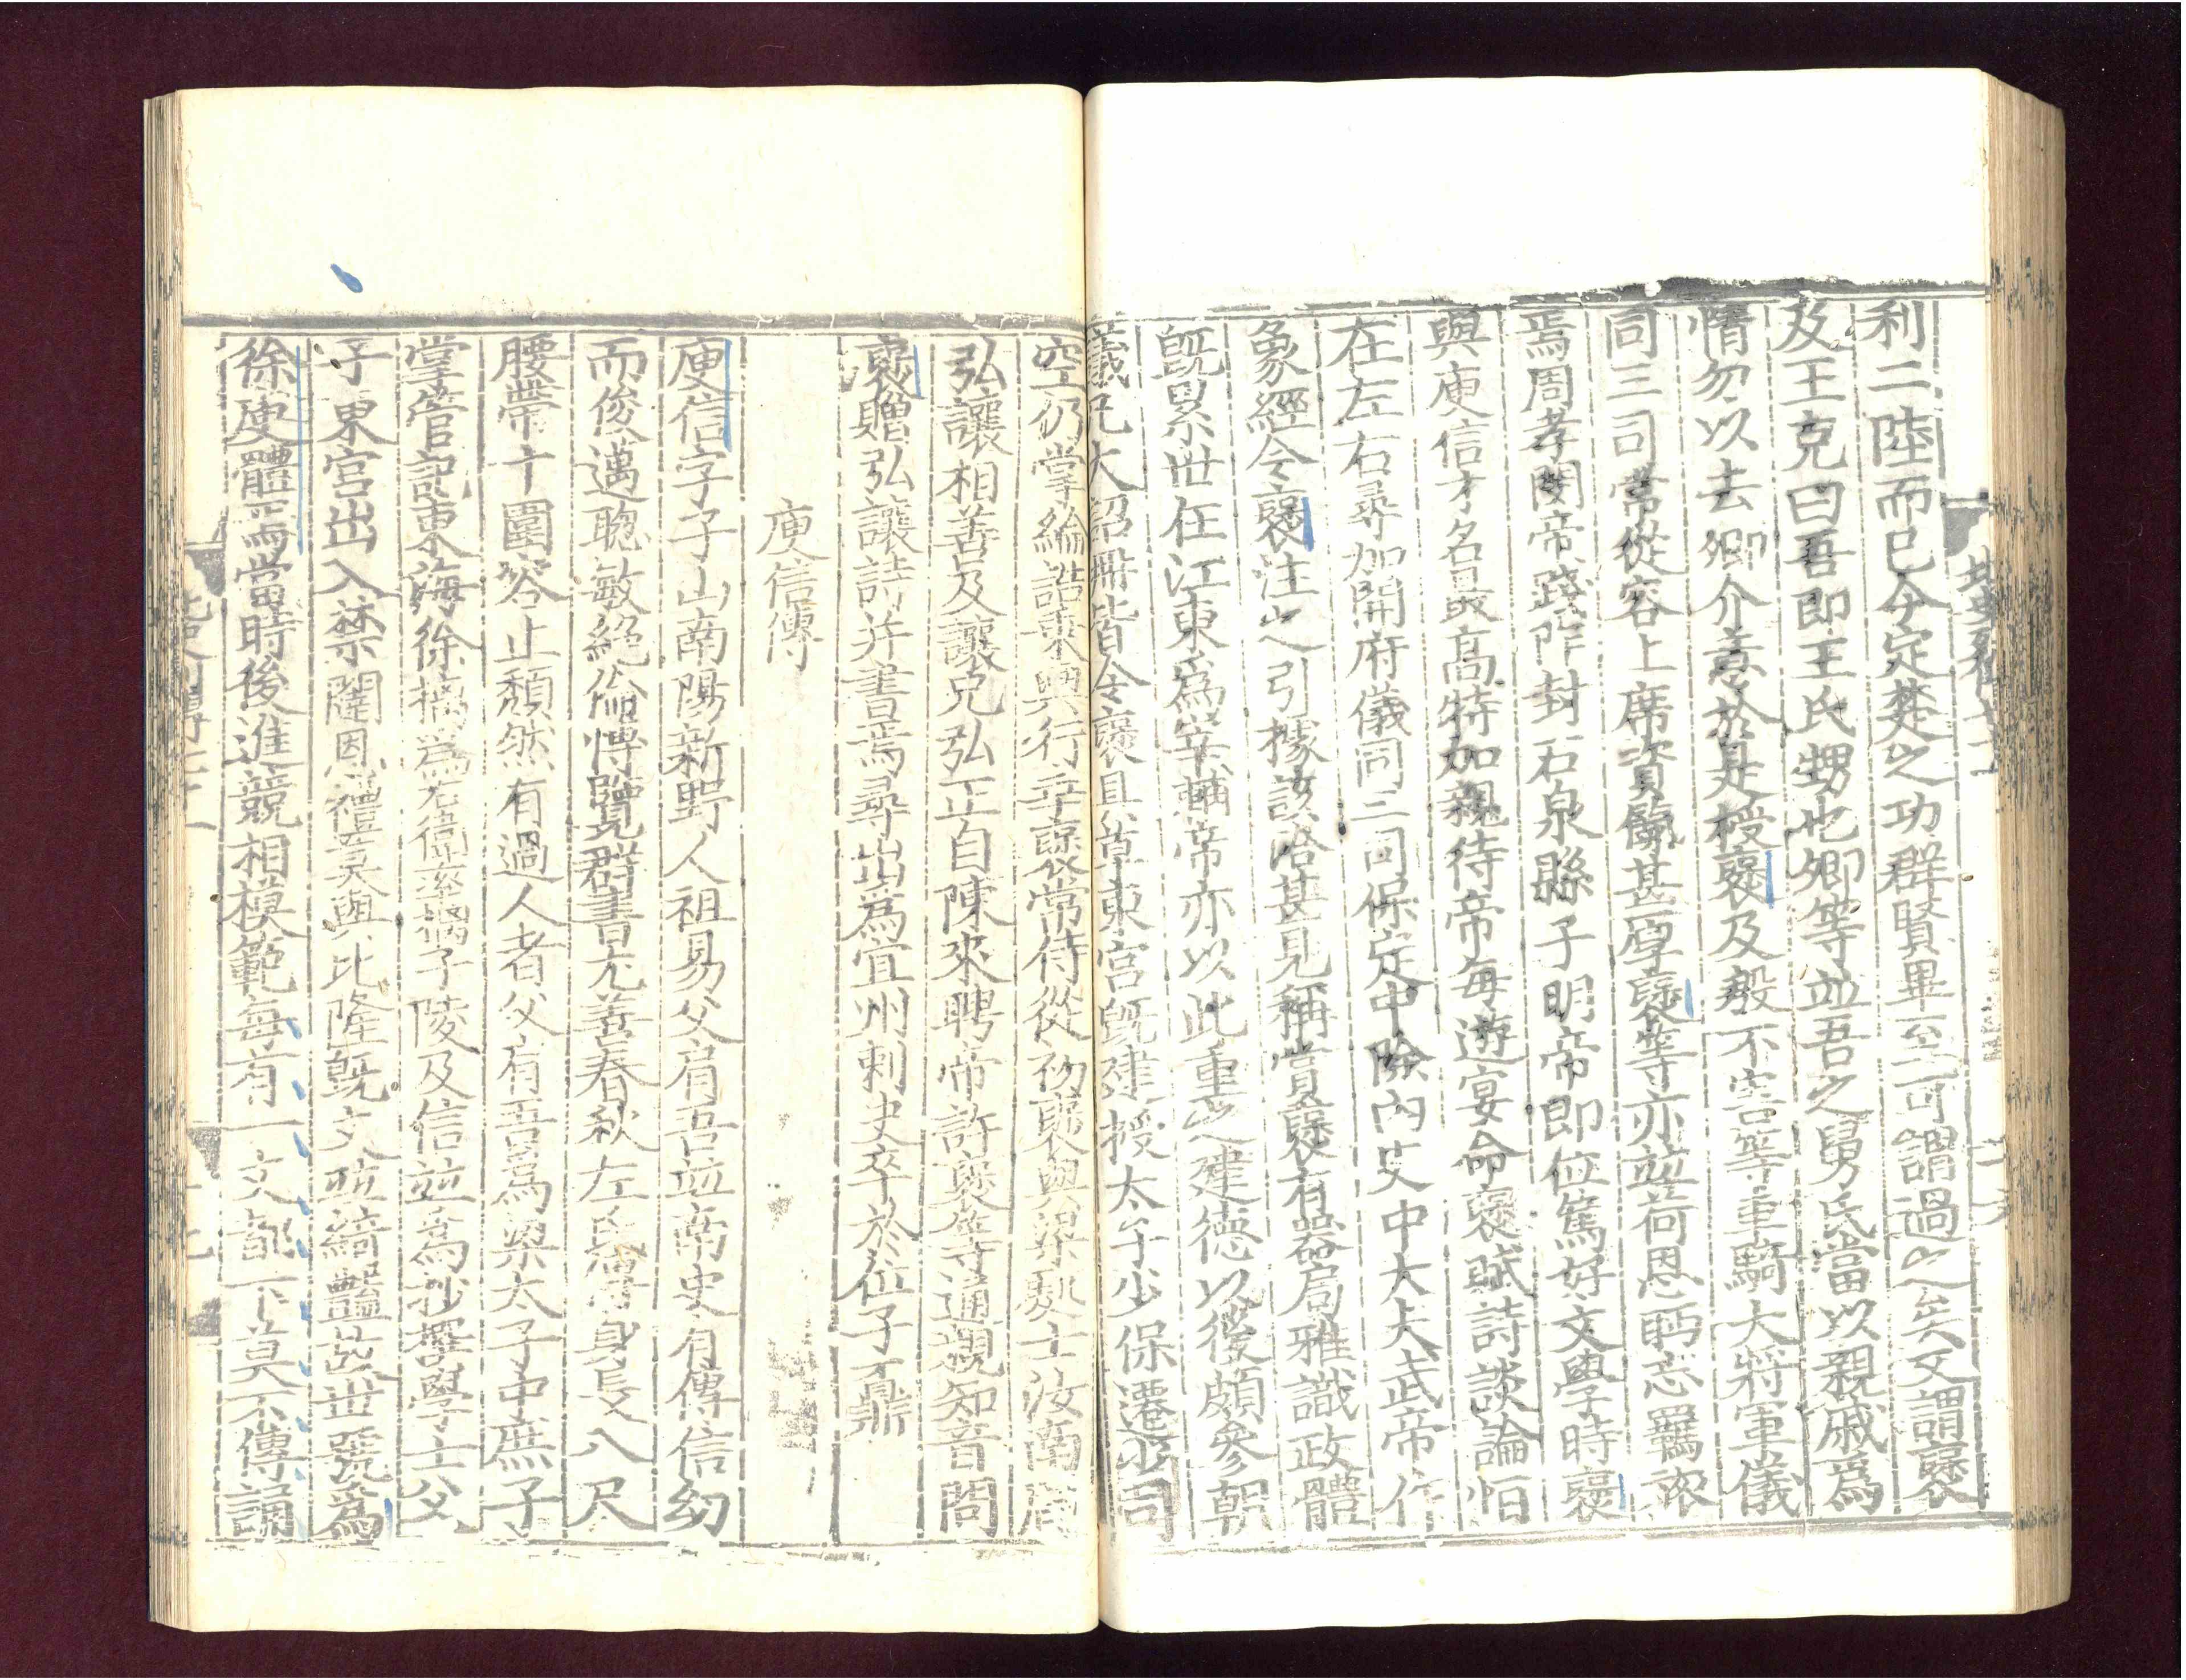 利二陸而已今定楚之功群賢畢至可謂過之矣又謂襃
及王克曰吾即王氏甥也卿等並吾之舅氏當以親戚爲
情勿以去卿介意於是授襃及殷不害等車騎大將軍儀
同三司常從容上席資餼甚厚襃等亦並荷恩眄忘羈旅
焉周孝閔帝踐阼封石泉縣子明帝即位篤好文學時襃
與庾信才名最高特加親待帝每遊宴命襃賦詩談論恒
在左右尋加開府儀同三司保定中除內史中大夫武帝作
象經令襃注之引據該洽甚見稱賞襃有器局雅識政體
旣累世在江東爲宰輔帝亦以此重之建德以後頗參朝
議凡大詔冊皆令襃具草東宮旣建授太子少保遷少司
空仍掌綸誥乘輿行幸襃常侍從初襃與梁處士汝南周
弘讓相善及讓兄弘正自陳來聘帝許襃等通親知音問
襃贈弘讓詩并書焉尋出爲宜州刺史卒於位子鼒
庾信傳
庾信字子山南陽新野人祖易父肩吾並南史有傳信幼
而俊邁聰敏絕倫博覽群書尤善春秋左氏傳身長八尺
腰帶十圍容止頹然有過人者父肩吾爲梁太子中庶子
掌管記東海徐摛爲右衛率摛子陵及信並爲抄撰學士父
子東宮出入禁闥恩禮莫與比隆旣文並綺豔故世號爲
徐庾體焉當時後進競相模範每有一文都下莫不傳誦